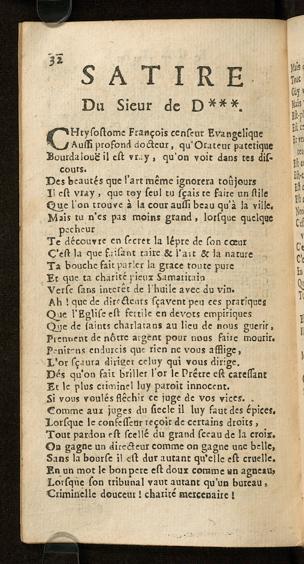 32
SATIRE
Du Sieur de D***.
CHrysostome François censeur Evangelique
Aussi profond docteur, qu'Orateur patetique
Bourdaloue il est vray, qu'on voit dans tes dis-
cours.
Des beautés que l'art même ignorera toûjours
Il est vray, que toy seul tu sçais te faire un stile
Que l'on trouve à la cour aussi beau qu'à la ville.
Mais tu n'es pas moins grand, lorsque quelque
pecheur
Te découvre en secret la lépre de son cœur
C'est la que faisant taire & l'art & la nature
Ta bouche fait parler la grace toute pure
Et que ta charité pieux Samaritain
Verse sans interêt de l'huile avec du vin.
Ah! que de directeurs sçavent peu ces pratiques
Que l'Eglise est fertile en devots empiriques
Que de saints charlatans au lieu de nous guerir,
Prennent de nôtre argent pour nous faire mourir.
Penitens endurcis que rien ne vous afflige,
L'or sçaura diriger celuy qui vous dirige.
Dés qu'on fait briller l'or le Prêtre est caressant
Et le plus criminel luy paroit innocent.
Si vous voulés fléchir ce juge de vos vices.
Comme aux juges du siecle il luy faut des épices.
Lorsque le confesseur reçoit de certains droits,
Tout pardon est scellé du grand sceau de la croix.
On gagne un directeur comme on gagne une belle,
Sans la bourse il est dur autant qu'elle est cruelle.
En un mot le bon pere est doux comme un agneau,
Lorsque son tribunal vaut autant qu'un bureau,
Criminelle douceur! charité mercenaire!